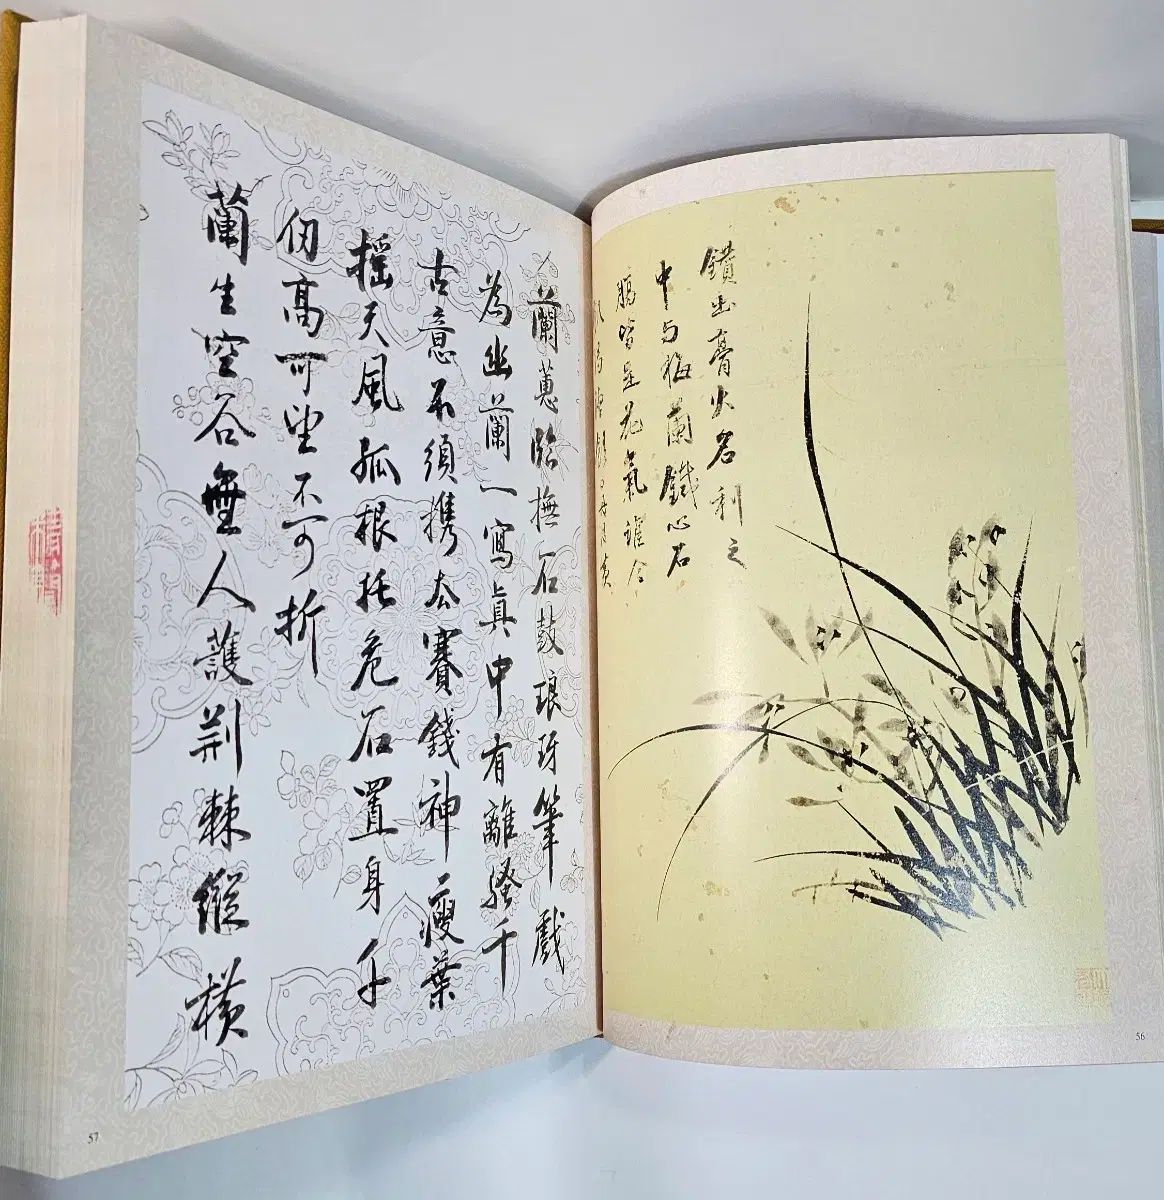 鑽出膏火名利之
中与梅蘭鐵心石
腸皆是花氣誰
蘭蕙臨撫石鼓琅玡筆戲
為幽蘭一寫真中有離騷千
古意不須携去賽錢神瘦葉
搖天風孤根托危石置身千
仞高可望不可折
蘭生空谷無人護荆棘縱橫
56
57